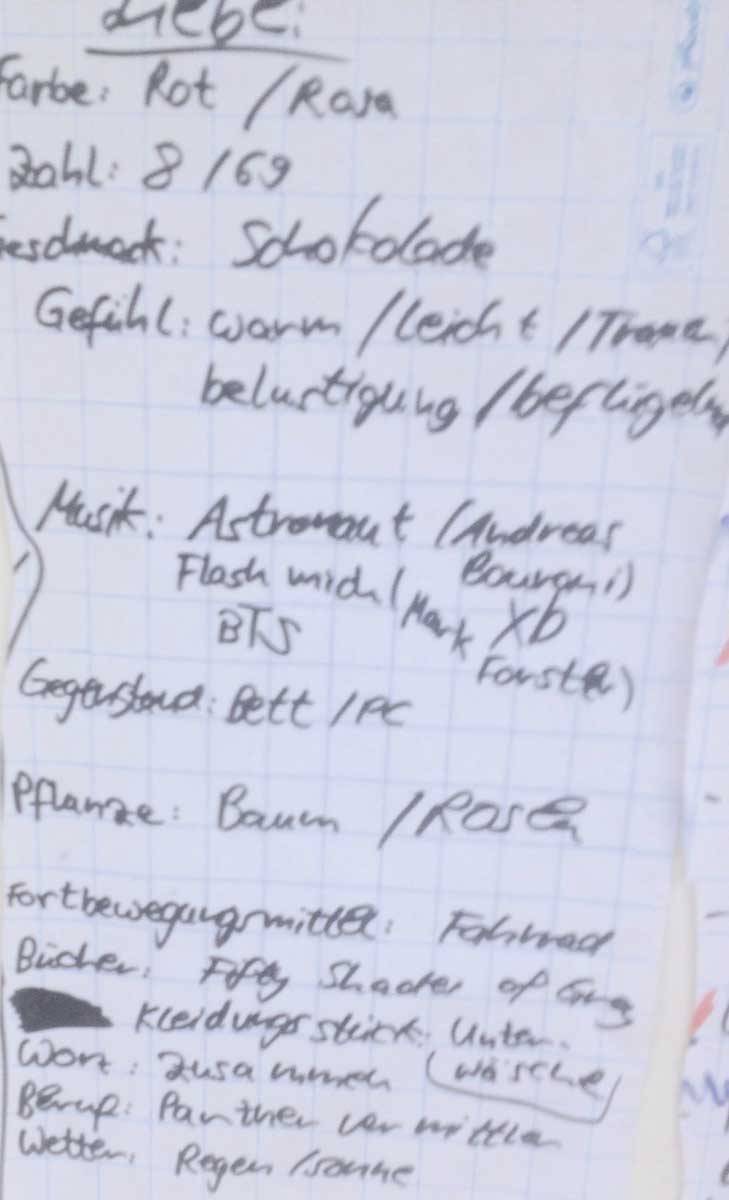 Liebe:
Farbe: Rot / Rosa
Zahl: 8 / 69
Geschmack: Schokolade
Gefühl: warm / leicht /
belustigung / beflügelnd
Musik: Astronaut (Andreas
Bourani)
Flash mich (Mark
Forster)
BTS XD
Gegenstand: Bett / PC
Pflanze: Baum / Rosen
Fortbewegungsmittel: Fahrrad
Bücher: Fifty Shades of Grey
Kleidungsstück: Unter-
wäsche
Wort: zusammen
Beruf: Partnervermittler
Wetter: Regen / Sonne